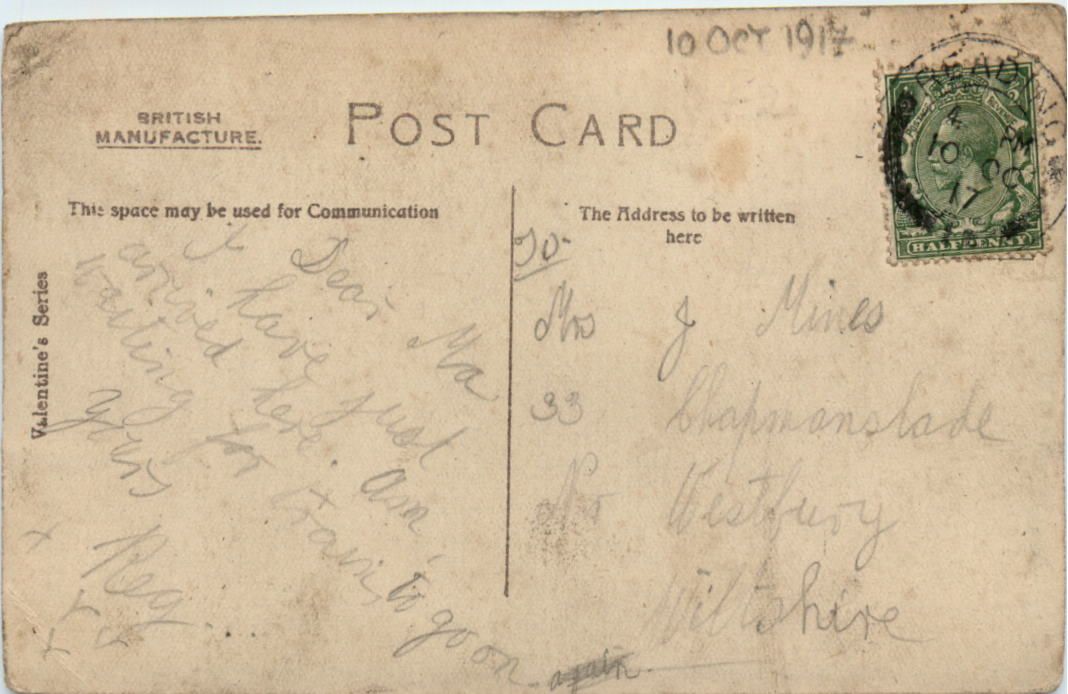 10 OCT 1917
BRITISH
MANUFACTURE.
POST CARD
READING
4. PM
10 OC
17
HALFPENNY
This space may be used for Communication
The Address to be written
here
Valentine's Series
Dear Ma
I have just
arrived here. am
waiting for train to go on
again.
yours
Reg....
x
To-
Mrs J Mines
33 Chapmanslade
Nr Westbury
Wiltshire